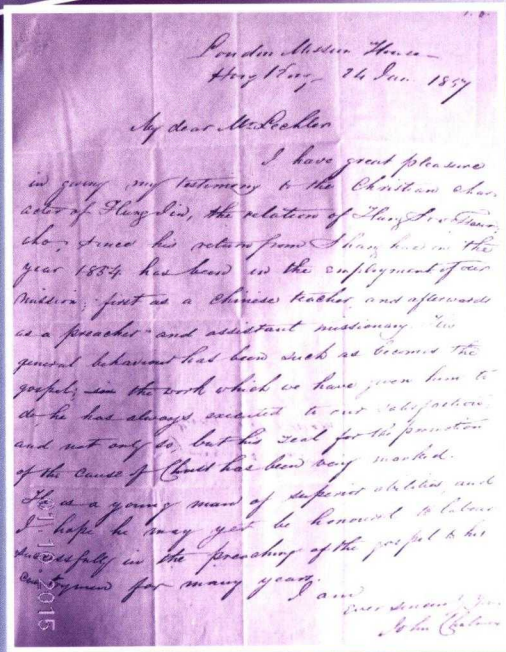 London Mission House
Hong Kong 24 Jan 1857
My dear Mr Lechler
I have great pleasure
in giving my testimony to the Christian char-
acter of Hung Jin, the relation of Hung
who, since his return from Shanghae in the
year 1854 has been in the employment of our
mission; first as a Chinese teacher and afterwards
as a preacher and assistant missionary. His
general behaviour has been such as becomes the
gospel; in the work which we have given him to
do he has always succeeded to our satisfaction;
and not only so, but his zeal for the promotion
of the cause of Christ has been very marked.
He is a young man of superior abilities and
I hope he may yet be honoured to labour
successfully in the preaching of the gospel to his
countrymen for many years.
I am
ever sincerely
John Chalmers
2015